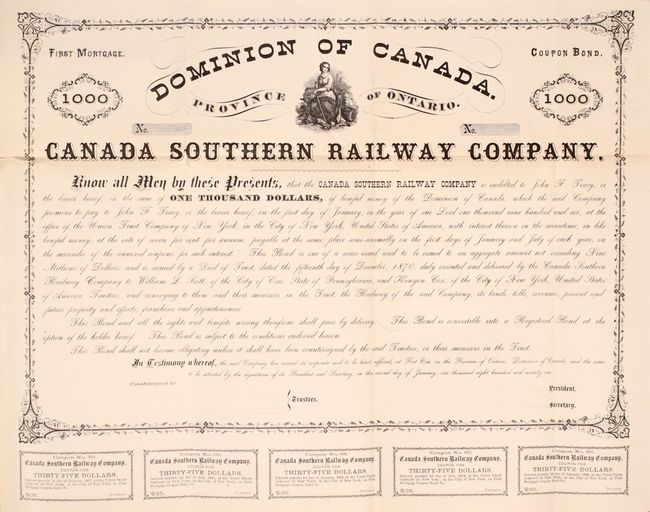 First Mortgage.
Coupon Bond.
DOMINION OF CANADA.
PROVINCE OF ONTARIO.
1000
1000
No.
No.
CANADA SOUTHERN RAILWAY COMPANY.
Know all Men by these Presents, that the CANADA SOUTHERN RAILWAY COMPANY is indebted to John F. Tracy, or
the bearer hereof, in the sum of ONE THOUSAND DOLLARS, of lawful money of the Dominion of Canada, which the said Company
promises to pay to John F. Tracy, or the bearer hereof, on the first day of January, in the year of our Lord one thousand nine hundred and six, at the
office of the Union Trust Company of New York, in the City of New York, United States of America, with interest thereon in the meantime, in like
lawful money, at the rate of seven per cent. per annum, payable at the same place semi-annually on the first days of January and July of each year, on
the surrender of the annexed coupons for such interest. This Bond is one of a series issued and to be issued to an aggregate amount not exceeding Nine
Millions of Dollars and is secured by a Deed of Trust, dated the fifteenth day of December, 1870, duly executed and delivered by the Canada Southern
Railway Company to William L. Scott, of the City of Erie, State of Pennsylvania, and Kenyon Cox, of the City of New York, United States
of America, Trustees, and conveying to them and their successors in the Trust, the Railway of the said Company, its lands, tolls, revenues, present and
future property and effects, franchises and appurtenances.
This Bond and all the rights and benefits arising therefrom shall pass by delivery. This Bond is convertible into a Registered Bond at the
option of the holder hereof. This Bond is subject to the conditions endorsed hereon.
This Bond shall not become obligatory unless it shall have been countersigned by the said Trustees, or their successors in the Trust.
In Testimony whereof, the said Company has caused its corporate seal to be hereto affixed, at Fort Erie, in the Province of Ontario, Dominion of Canada, and the same
to be attested by the signatures of its President and Secretary, on this second day of January, one thousand eight hundred and seventy-one.
Countersigned by
President.
Trustees.
Secretary.
Coupon No.
Canada Southern Railway Company.
COUPON FOR
THIRTY-FIVE DOLLARS,
$35.
Coupon No.
Canada Southern Railway Company.
COUPON FOR
THIRTY-FIVE DOLLARS,
$35.
Coupon No.
Canada Southern Railway Company.
COUPON FOR
THIRTY-FIVE DOLLARS,
$35.
Coupon No. 67.
Canada Southern Railway Company.
COUPON FOR
THIRTY-FIVE DOLLARS,
$35.
Coupon No.
Canada Southern Railway Company.
COUPON FOR
THIRTY-FIVE DOLLARS,
$35.